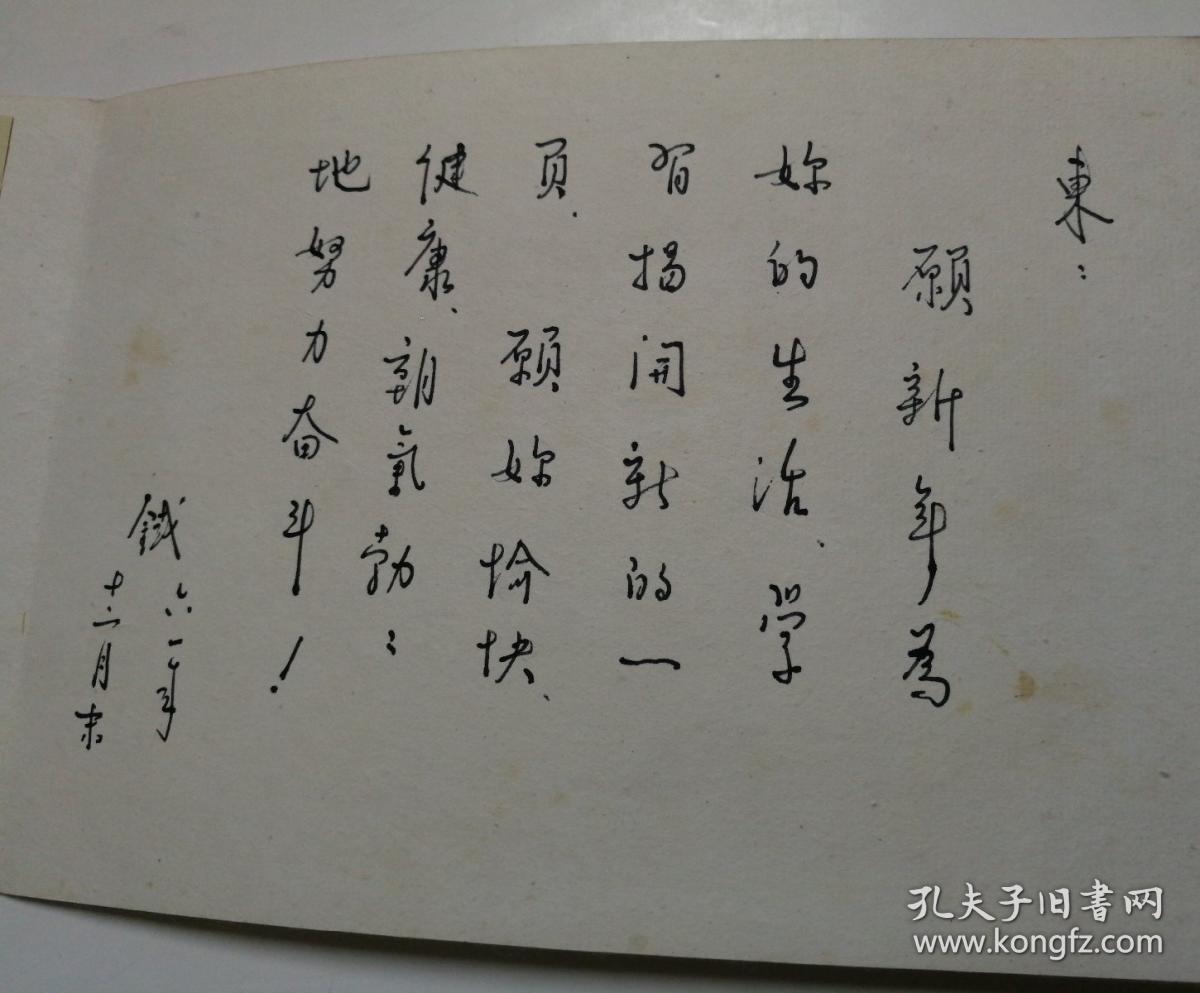 東：
願新年為
妳的生活、学
習揭開新的一
頁、願妳愉快、
健康、朝氣勃：
地努力奋斗！
鐵 六一年
十二月末
孔夫子旧書网
www.kongfz.com